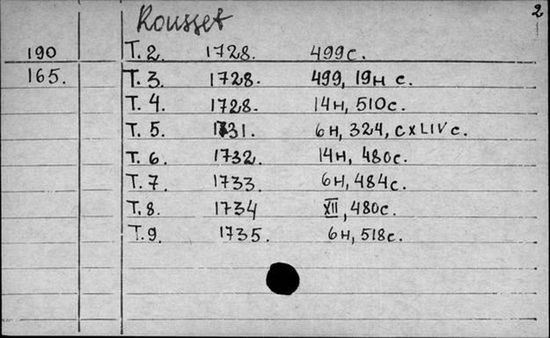 Rousset 2
190 T. 2. 1728. 499 с.
165. T. 3. 1728. 499, 19н с.
T. 4. 1728. 14н, 510с.
T. 5. 1731. 6н, 324, CXLIV с.
T. 6. 1732. 14н, 480с.
T. 7. 1733. 6н, 484с.
T. 8. 1734 XII, 480с.
T. 9. 1735. 6н, 518с.